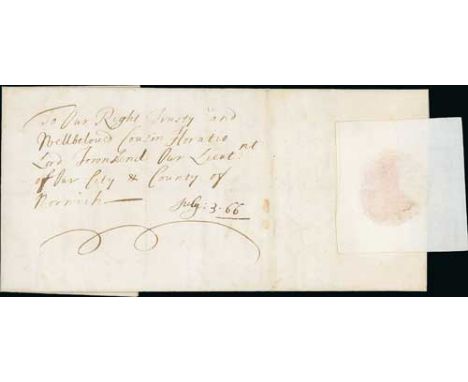 To Our Right Trusty and
Wellbeloud Cousin Horatio
Lord Townsend Our Lieut.nt
of Our City & County of
Norwich
July: 3. 66